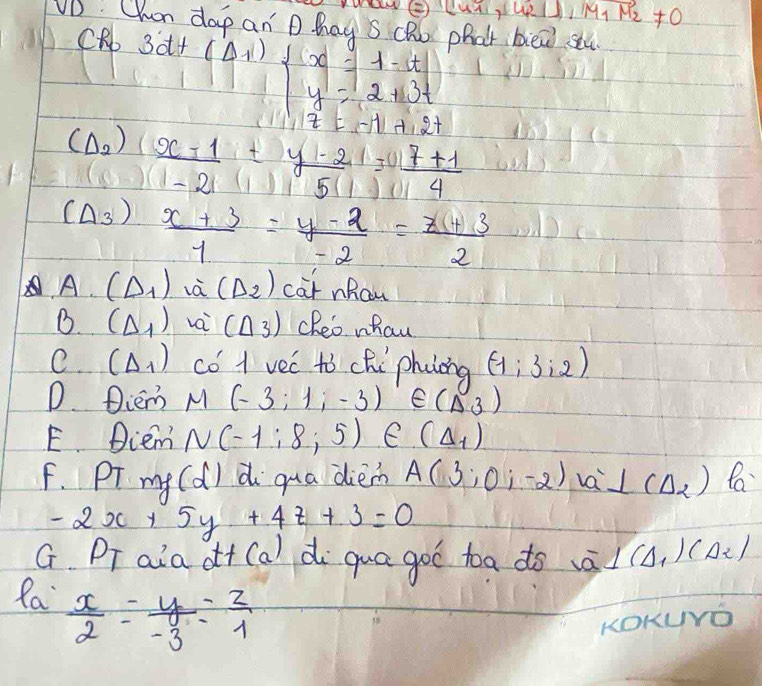 VD: Chọn đáp án Đ hay S cho phát biểu sau.
Cho 3đt (Δ1) { x = 1 - t
y = 2 + 3t
z = -1 + 2t
(Δ2) x - 1 / -2 = y - 2 / 5 = z + 1 / 4
(Δ3) x + 3 / 1 = y - 2 / -2 = z + 3 / 2
A. (Δ1) và (Δ2) cắt nhau
B. (Δ1) và (Δ3) chéo nhau
C. (Δ1) có 1 véc tơ chỉ phương (-1; 3; 2)
D. Điểm M (-3; 1; -3) ∈ (Δ3)
E. Điểm N (-1; 8; 5) ∈ (Δ1)
F. PT mp (α) đi qua điểm A (3; 0; -2) và ⊥ (Δ2) là
-2x + 5y + 4z + 3 = 0
G. PT của đt (a) đi qua gốc toạ độ và ⊥ (Δ1) (Δ2)
là x / 2 = y / -3 = z / 1
KOKUYO